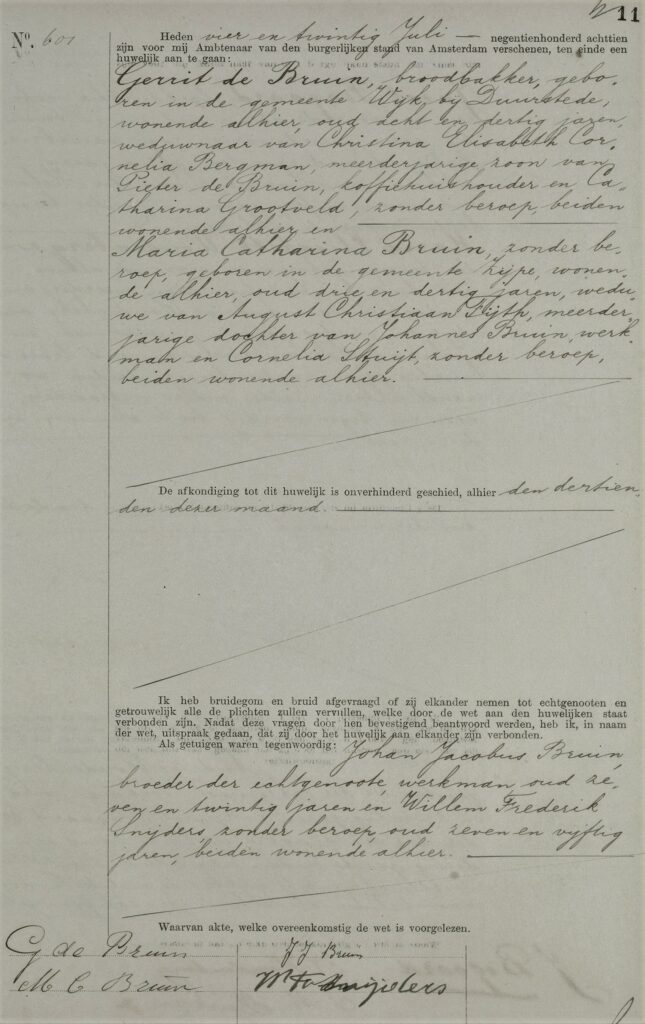 11
No. 601
Heden vier en twintig Juli — negentienhonderd achttien
zijn voor mij Ambtenaar van den burgerlijken stand van Amsterdam verschenen, ten einde een
huwelijk aan te gaan:
Gerrit de Bruin, broodbakker, gebo-
ren in de gemeente Wijk bij Duurstede,
wonende alhier, oud acht en dertig jaren,
weduwnaar van Christina Elisabeth Cor-
nelia Bergman, meerderjarige zoon van
Pieter de Bruin, koffiehuishouder en Ca-
tharina Grootveld, zonder beroep, beiden
wonende alhier en
Maria Catharina Bruin, zonder be-
roep, geboren in de gemeente Zijpe, wonen-
de alhier, oud drie en dertig jaren, wedu-
we van August Christiaan Fijth, meerder-
jarige dochter van Johannes Bruin, werk-
man en Cornelia Stuijt, zonder beroep,
beiden wonende alhier.
De afkondiging tot dit huwelijk is onverhinderd geschied, alhier den dertien-
den dezer maand.
Ik heb bruidegom en bruid afgevraagd of zij elkander nemen tot echtgenooten en
getrouwelijk alle de plichten zullen vervullen, welke door de wet aan den huwelijken staat
verbonden zijn. Nadat deze vragen door hen bevestigend beantwoord werden, heb ik, in naam
der wet, uitspraak gedaan, dat zij door het huwelijk aan elkander zijn verbonden.
Als getuigen waren tegenwoordig: Johan Jacobus Bruin,
broeder der echtgenoote, werkman, oud ze-
ven en twintig jaren en Willem Frederik
Snijders, zonder beroep, oud zeven en vijftig
jaren, beiden wonende alhier.
Waarvan akte, welke overeenkomstig de wet is voorgelezen.
G de Bruin
J J Bruin
M C Bruin
W F Snijders